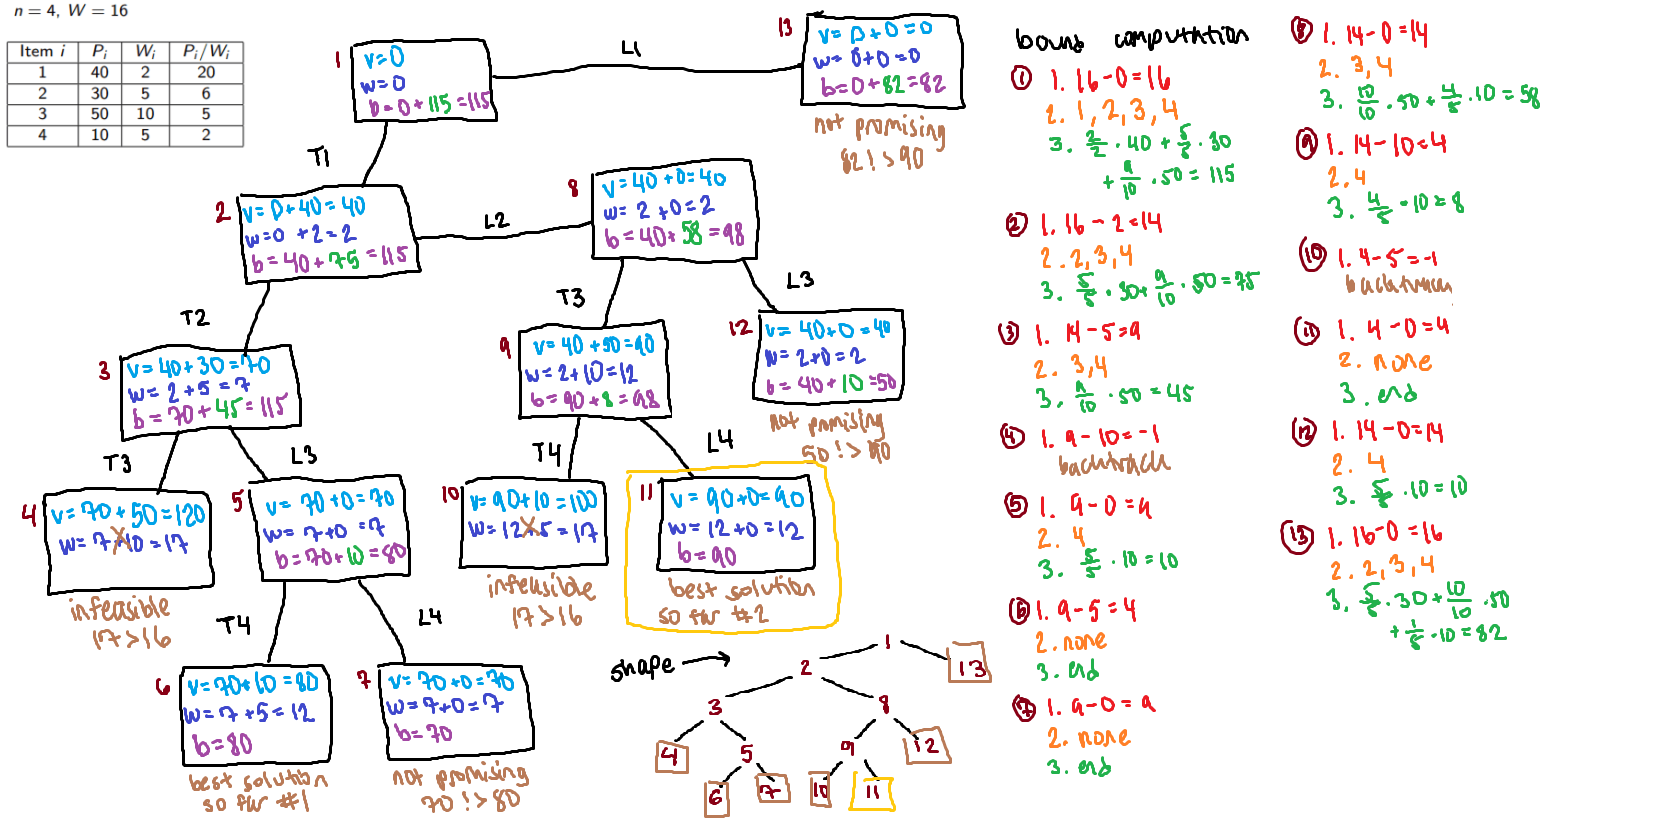 n = 4, W = 16
Item i Pi Wi Pi/Wi
1 40 2 20
2 30 5 6
3 50 10 5
4 10 5 2
1
v=0
w=0
b=0+115=115
L1
13
v=0+0=0
w=0+0=0
b=0+82=82
not promising
82!>90
T1
2
v=0+40=40
w=0+2=2
b=40+75=115
L2
8
v=40+0=40
w=2+0=2
b=40+58=98
T2
T3
L3
3
v=40+30=70
w=2+5=7
b=70+45=115
9
v=40+50=90
w=2+10=12
b=90+8=98
12
v=40+0=40
w=2+0=2
b=40+10=50
not promising
50!>90
T3
L3
T4
L4
4
v=70+50=120
w=7+10=17
infeasible
17>16
5
v=70+0=70
w=7+0=7
b=70+10=80
10
v=90+10=100
w=12+5=17
infeasible
17>16
11
v=90+0=90
w=12+0=12
b=90
best solution
so far #2
T4
L4
6
v=70+10=80
w=7+5=12
b=80
best solution
so far #1
7
v=70+0=70
w=7+0=7
b=70
not promising
70!>80
shape →
1
2 13
3 8
4 5 9 12
6 7 10 11
bound computation
① 1. 16-0=16
2. 1, 2, 3, 4
3. 2/2 · 40 + 5/5 · 30
+ 9/10 · 50 = 115
② 1. 16-2=14
2. 2, 3, 4
3. 5/5 · 30 + 9/10 · 50 = 75
③ 1. 14-5=9
2. 3,4
3. 9/10 · 50 = 45
④ 1. 9-10=-1
backtrack
⑤ 1. 9-0=9
2. 4
3. 5/5 · 10 = 10
⑥ 1. 9-5=4
2. none
3. end
⑦ 1. 9-0=9
2. none
3. end
⑧ 1. 14-0=14
2. 3,4
3. 10/10 · 50 + 4/5 · 10 = 58
⑨ 1. 14-10=4
2. 4
3. 4/5 · 10 = 8
⑩ 1. 4-5=-1
backtrack
⑪ 1. 4-0=4
2. none
3. end
⑫ 1. 14-0=14
2. 4
3. 5/5 · 10 = 10
⑬ 1. 16-0=16
2. 2,3,4
3. 5/5 · 30 + 10/10 · 50
+ 1/5 · 10 = 82